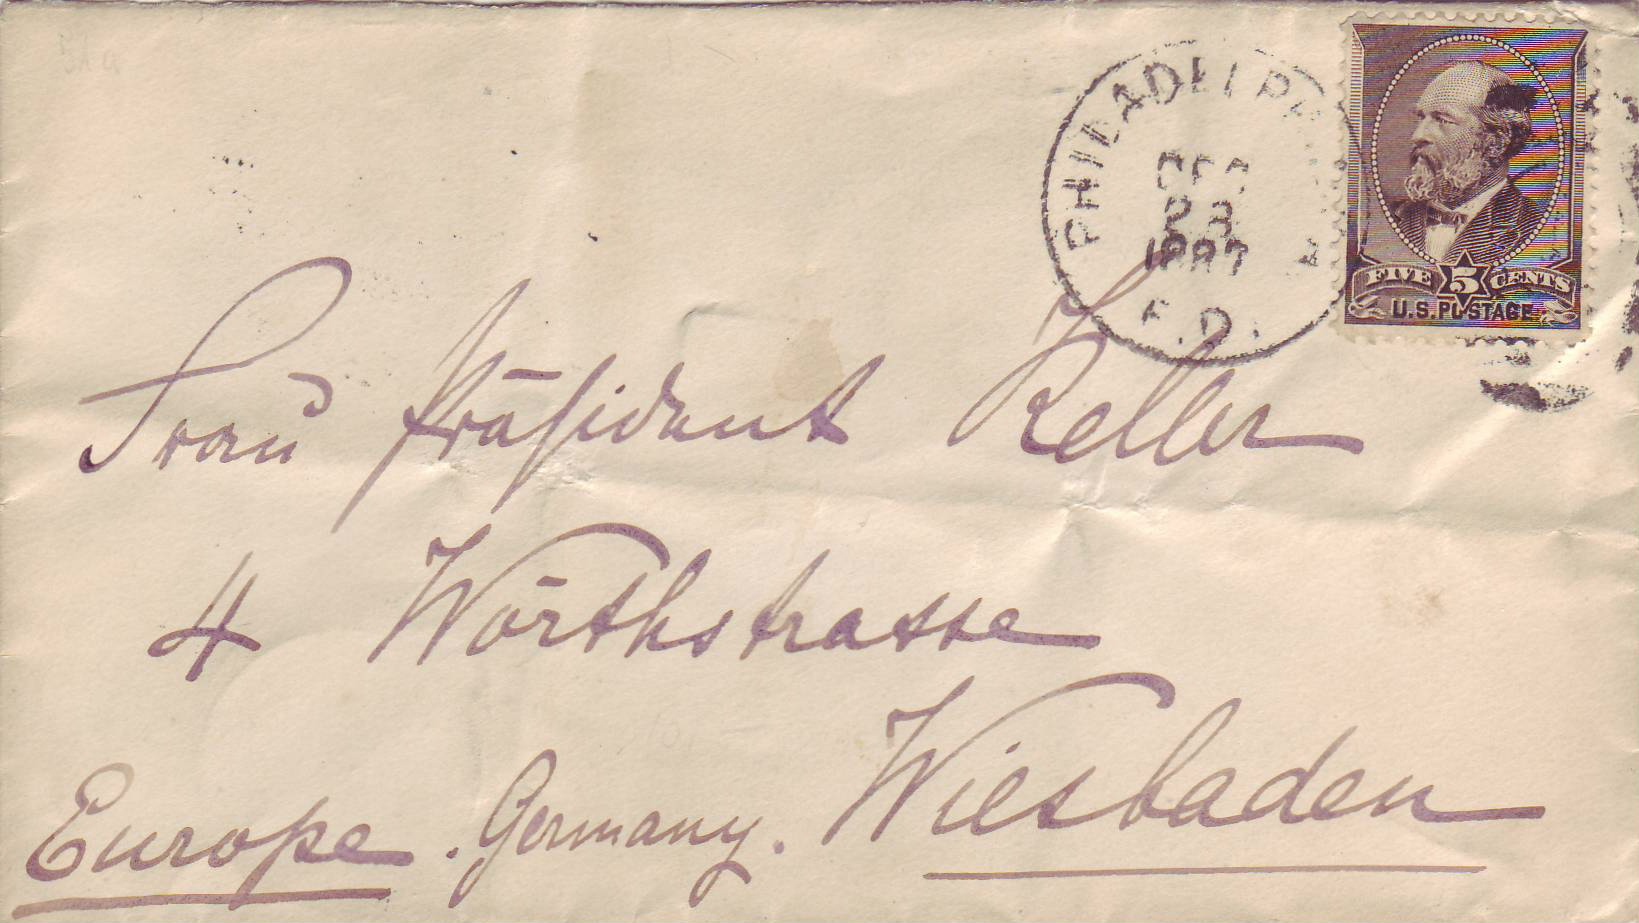 PHILADELPHIA
DEC
23
1887
P.D.
FIVE 5 CENTS
U.S. POSTAGE
Frau Präsident Keller
4 Wörthstrasse
Wiesbaden
Europe. Germany.